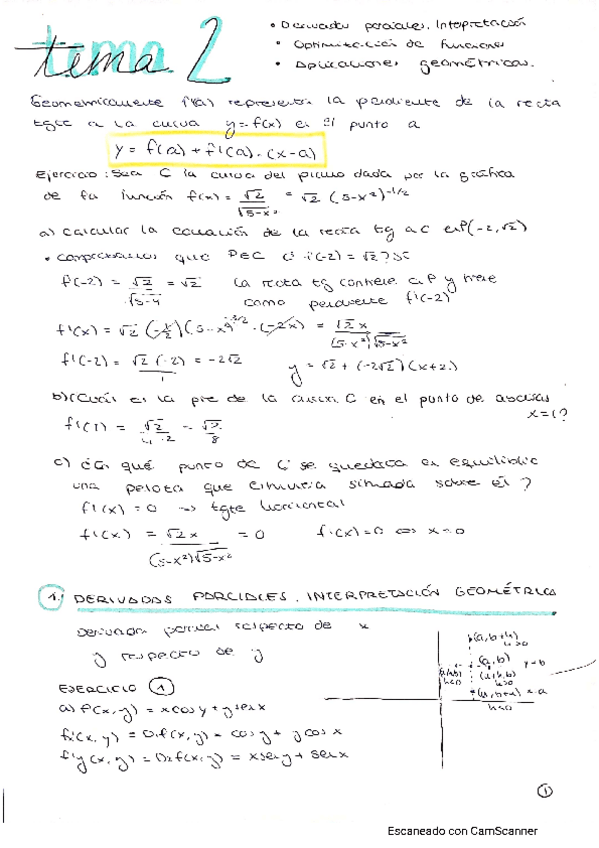 tema 2
• Derivadas parciales. Interpretación
• Optimización de funciones
• Aplicaciones geométricas.
Geométricamente f'(a) representa la pendiente de la recta
tgte a la curva y=f(x) en el punto a
y = f(a) + f'(a) · (x-a)
Ejercicio: Sea C la curva del plano dada por la gráfica
de la función f(x) = √2 / √5-x² = √2 (5-x²)^-1/2
a) calcular la ecuación de la recta tg a C en P(-2,√2)
• comprobamos que P∈C ¿f(-2) = √2? Sí
f(-2) = √2 / √5-4 = √2 la recta tg contiene a P y tiene
como pendiente f'(-2)
f'(x) = √2 (-1/2)(5-x²)^-3/2 · (-2x) = √2 x / (5-x²)√5-x²
f'(-2) = √2 (-2) / 1 = -2√2 y = √2 + (-2√2)(x+2)
b) ¿Cuál es la pte de la curva C en el punto de abscisas
x=1?
f'(1) = √2 / 4·2 = √2 / 8
c) ¿En qué punto de C se quedaría en equilibrio
una pelota que estuviera situada sobre él?
f'(x) = 0 → tgte horizontal
f'(x) = √2 x / (5-x²)√5-x² = 0 f'(x)=0 ⇔ x=0
1. DERIVADAS PARCIALES. INTERPRETACIÓN GEOMÉTRICA
Derivada parcial respecto de x
y respecto de y
(a,b+h)
h>0
(a,b) y=b
h<0
h>0
EJERCICIO 1
a) f(x,y) = x cos y + y sen x
f'x(x,y) = D1f(x,y) = cos y + y cos x
f'y(x,y) = D2f(x,y) = x sen y + sen x
1
Escaneado con CamScanner